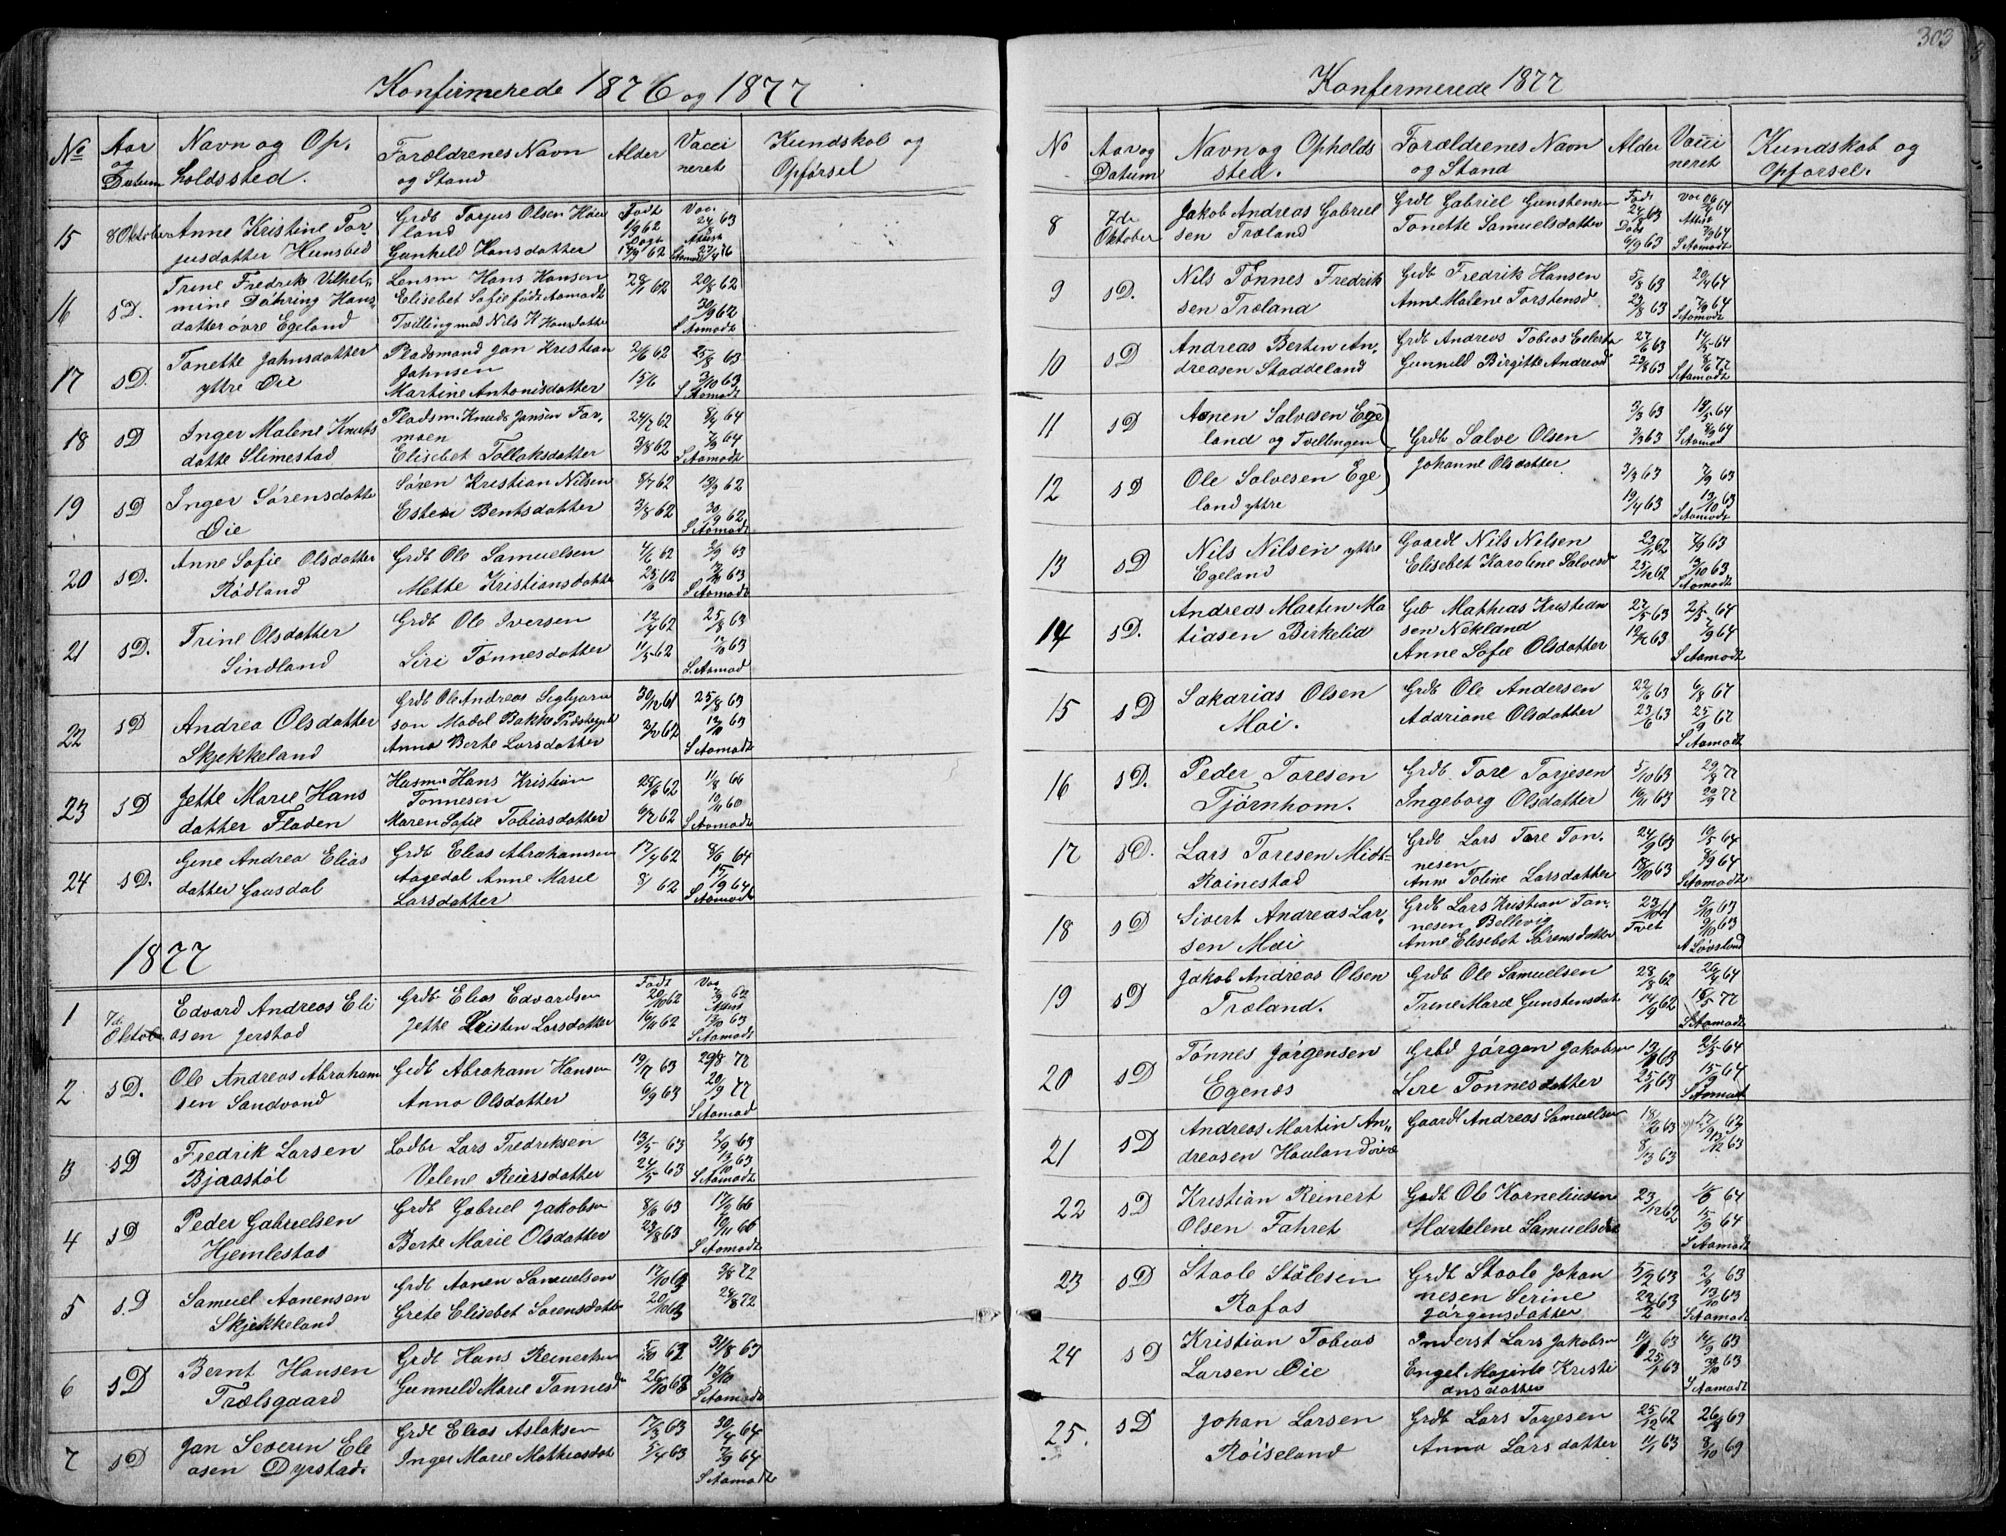 303
Konfirmerede 1876 og 1877
No
Aar og Datum
Navn og Op-
holdssted.
Forældrenes Navn
og Stand
Alder
Vacci
neret
Kundskab og
Opførsel
15 8 Oktober Anne Kristine Tor
jusdatter Hunsbed
Grdb Torjus Olsen
land
Gunhild Hansdatter
Født
1/9 62
Døbt
Vac
63
Attest
S Aamodt
16 s D. Trine Fredrik Vilhel-
mine Døhring Hans-
datter øvre Egeland
Lensm Hans Hansen
Elisebet Sofie født Aamodt
Tvilling med Nils K Hansdatter
28/1 62
20/8 62
30/9 62
S Aamodt
17 s D. Tonette Jahnsdatter
yttre Øie
Pladsmand Jan Kristian
Jahnsen
Martine Antonisdatter
2/6 62
15/6
25/8 63
3/10 63
S Aamodt
18 s D Inger Malene Knuts
datte Slimestad
Pladsm. Knud Jansen For-
moen
Elisebet Tollaksdatter
24/7 62
3/8 62
8/4 64
7/9 64
S Aamodt
19 s D Inger Sørensdatte
Øie
Søren Kristian Nilsen
Ester Bentsdatter
8/7 62
3/8 62
13/9 62
30/9 62
S Aamodt
20 s D. Anne Sofie Olsdatter
Rødland
Grdb Ole Samuelsen
Mette Kristiansdatter
4/6 62
25/6 62
2/9 63
63
S Aamodt
21 s D. Trine Olsdatter
Sindland
Grdb Ole Iversen
Siri Tønnesdatter
12/4 62
11/5 62
25/8 63
12/10 63
S. Aamod
22 s D Andrea Olsdatter
Skjekkeland
Grdb Ole Andreas Sigbjørn
søn Modal Bakke Prdstegjel
Anna Berte Larsdatter
30/12 61
3/2 62
25/8 63
12/10 63
S Aamodt
23 s D Jette Marie Hans
datter Fladen
Husm. Hans Kristian
Tønnesen
Maren Sofie Tobiasdatter
62
6/7 62
11/8 66
60
S Aamodt
24 s D. Gene Andrea Elias
datter Gausdal
Grdb Elias Abrahamsen
Aagedal Anne Marie
Larsdatter
17/4 62
62
8/6 64
15/9 64
S Aamodt
1877
1 7de Oktober Edvard Andreas Eli
asen Jerstad
Grdb Elias Edvardsen
Jette Kristen Larsdatter
Født
20/10 62
16/11 62
Vac
7/9 62
Attest
12/10 63
S Aamodt
2 s D. Ole Andreas Abraham
sen Sandvand
Grdb Abraham Hansen
Anna Olsdatter
19/7 63
6/9 63
29/8 77
20/9 77
S Aamod
3 s D Fredrik Larsen
Bjaastøl
Ladbr Lars Fredriksen
Velene Reiersdatter
13/5 63
24/5 63
2/9 63
13/10 63
S Aamodt
4 s D Peder Gabrielsen
Hjemlestad
Grdb Gabriel Jakobsen
Berte Marie Olsdatter
8/6 63
23/8 63
17/9 66
10/11 66
S Aamodt
5 s. D Samuel Aanensen
Skjekkeland
Grdb Aanen Samuelsen
Grete Elisebet Sørensdatter
17/10 63
20/10 63
9/8 72
24/8 72
6 s D Bernt Hansen
Trælsgaard
Grdb Hans Reinertsen
Gunneld Marie Tønnesd
5/10 62
26/10 62
31/8 63
13/10
S Aamodt
7 s D Jan Severin Eli
asen Dyrstad.
Grdb Elias Aslaksen
Inger Marie Mathiasdat
17/3 63
5/4 63
30/4 64
7/9 64
S Aamodt
Konfermerede 1877
No
Aar og
Datum
Navn og Opholds
sted.
Forældrenes Navn
og Stand
Alder
Vacci
neret
Kundskab og
Opførsel.
8 7de Oktober Jakob Andreas Gabriel
sen Træland
Grdb Gabriel Gunstensen
Tonette Samuelsdatter
Født
63
Døbt
6/9 63
Vac
64
Attest
7/9 64
S Aamodt
9 s D. Nils Tønnes Fredrik
sen Træland
Grdb Fredrik Hansen
Anne Malene Torstensd.
5/8 63
23/8 63
20/4 64
7/9 64
S Aamodt
10 s D Andreas Bertin An-
dreasen Staddeland
Grdb Andreas Tobias Eilerts
Gunnild Birgitte Andreasd
27/6 63
23/8 63
64
72
S Aamodt
11 s D Aanen Salvesen Ege
land og Tvillingen
Grdb Salve Olsen
3/3 63
63
64
8/9 64
S Aamod
12 s D Ole Salvesen Ege
land yttre
Johanne Olsdatter
3/3 63
19/4 63
7/9 63
13/10 63
S Aamodt
13 s D Nils Nilsen yttre
Egeland
Gaardb Nils Nilsen
Elisebet Karoline Salvesd
23/11 62
25/12 62
7/9 63
13/10 63
S Aamodt
14 s D. Andreas Martin Ma
tiasen Birkelid
Grdb Mathias Kristian
sen Nekland
Anne Sofie Olsdatter
27/5 63
63
2/5 64
7/9 64
S Aamodt
15 s D Sakarias Olsen
Moi.
Grdb Ole Andersen
Adriane Olsdatter
22/6 63
23/6 63
6/8 67
25/9 67
S Aamodt
16 s D. Peder Toresen
Tjørnhom.
Grdb Tore Torjesen
Ingeborg Olsdatter
5/10 63
16/11 63
29/8 77
20/9 77
17 s D. Lars Toresen Midt-
Rainestad
Grdb Lars Tore Tøn-
nesen
Ane Toline Larsdatter
24/9 63
18/10 63
19/5 64
8/9 64
S Aamodt
18 s D Sivert Andreas Lar-
sen Moi
Grdb Lars Kristian Tøn-
nesen Bellevig
Anne Elisebet Sørensdatter
23/10 61
Tvet
9/9 63
9/10 63
A Løvsland
19 s D Jakob Andreas Olsen
Træland.
Grdb Ole Samuelsen
Trine Marie Gunstensdat
28/8 62
14/9 62
26/4 64
15/5 77
S Aamodt
20 s D Tønnes Jørgensen
Egenes
Grbd Jørgen Jakobsen
Sire Tønnesdatter
63
63
21/5 64
15/9 64
S Aamodt
21 s D Andreas Martin An-
dreasen Hauland øvre
Gaardb Andreas Samuelsen
63
63
63
63
22 s D Kristian Reinert
Olsen Fahret
Grdb Ole Korneliusen
Martelene Samuelsda
23/12 62
64
15/9 64
S Aamodt
23 s D Staale Stålesen
Rafos
Grdb Staale Johan
nesen Serine
Jørgensdatter
5/2 63
22/2 63
2/9 63
13/10 63
S Aamodt
24 s D Kristian Tobias
Larsen Øie
Inderst Lars Jakobsen
Engel Majente Kristi
ansdatter
63
25/1 63
14/9 63
63
S Aamodt
25. s D Johan Larsen
Røiseland
Grdb Lars Torjesen
Anna Larsdatter
25/12 62
11/1 63
26/8 69
8/10 69